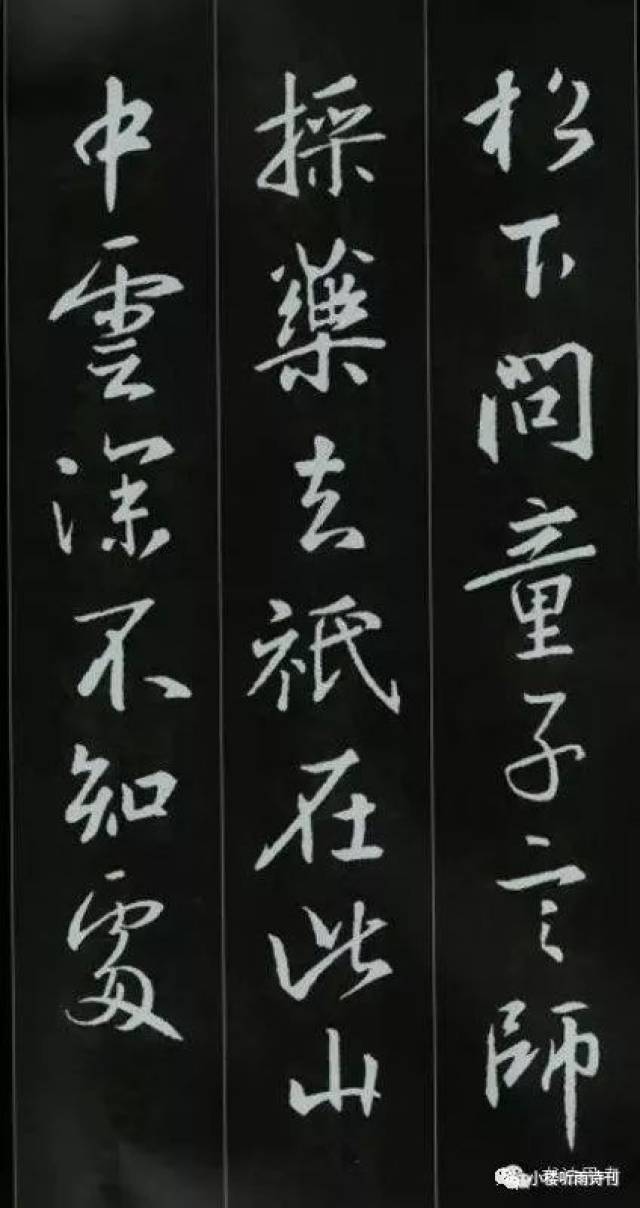 松下問童子言師
採藥去祇在此山
中雲深不知處
小楼听雨诗刊